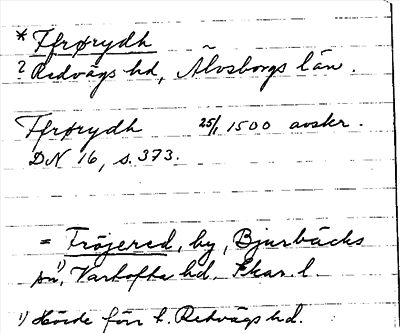 * Ffrørydh
? Redvägs hd, Älvsborgs län.
Ffrørydh 25/1 1500 avskr.
DN 16, s. 373.
= Fröjered, by, Bjurbäcks
sn¹⁾, Vartofta hd. Skar. l.
¹⁾ Hörde förr t. Redvägs hd.